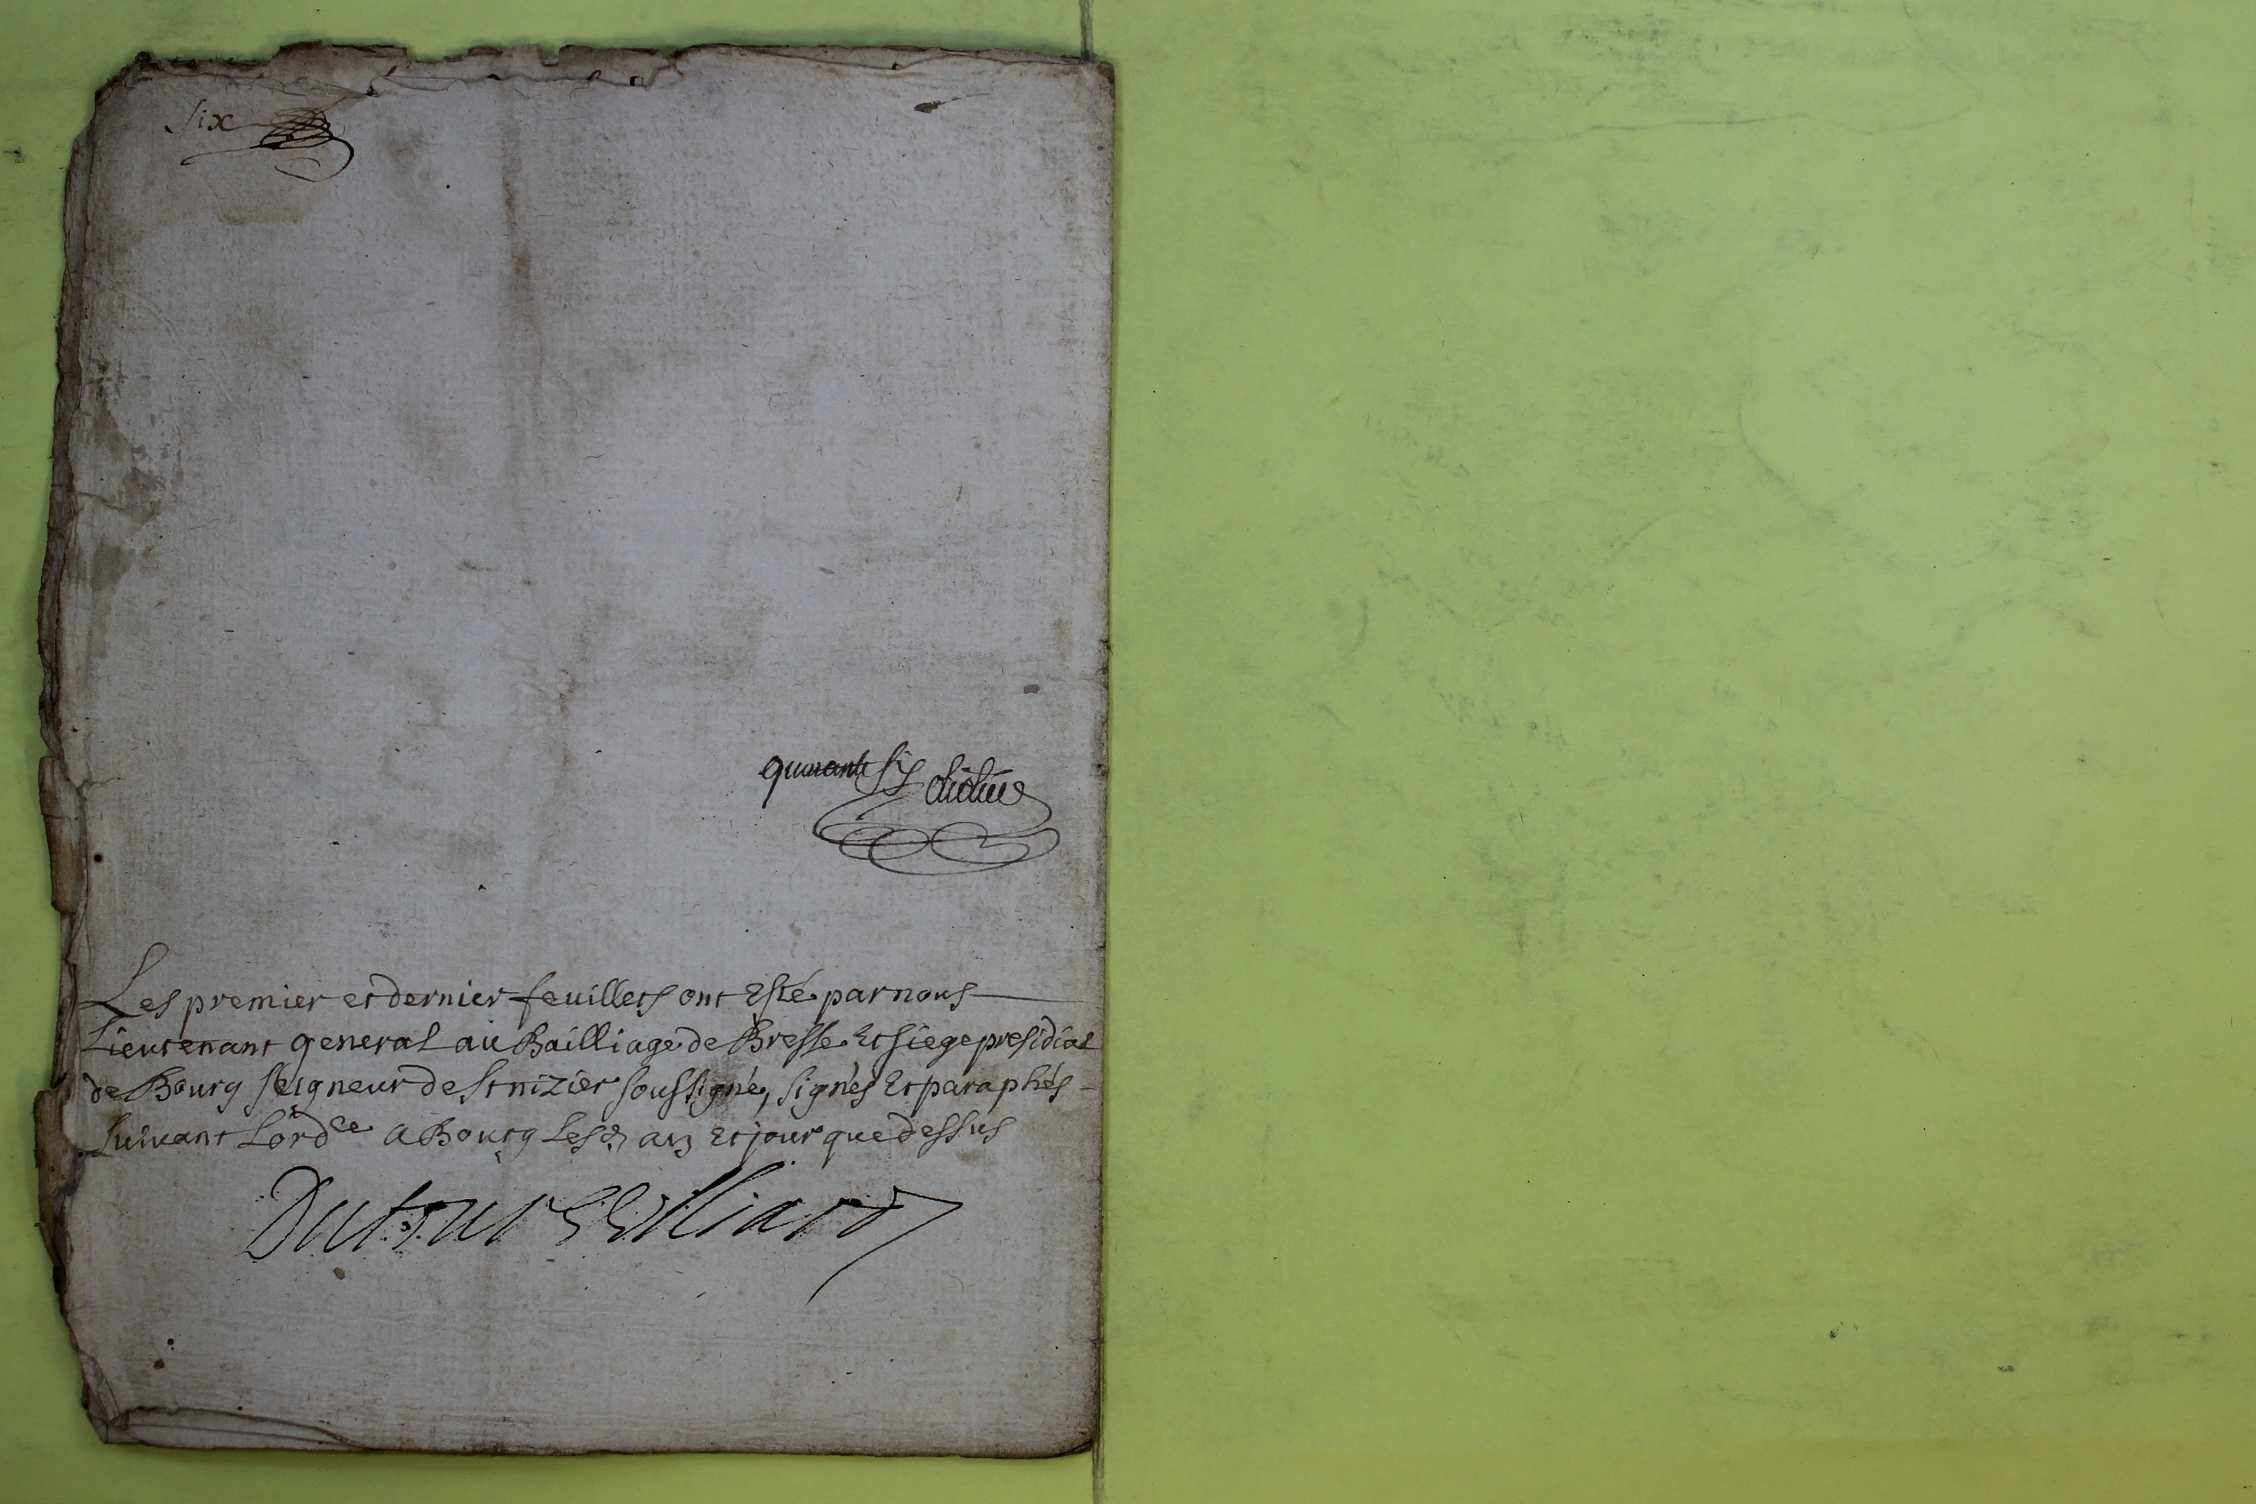 Six
quarante six
Les premier et dernier feuillets ont Esté par nous
Lieutenant general au Bailliage de Bresse Et siege presidial
de Bourg seigneur de St nizier soussigné, signés Et paraphés
suivant Lordce A Bourg Lesd an Et jour que dessus
Dutour Vuilliard